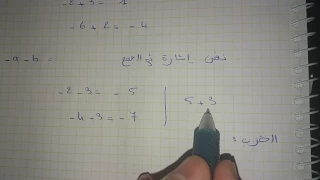 -2+3= 1
-6+2=-4
نفس إشارة في الجمع -a-b=
-2-3=-5 | 5+3
-4-3=-7
الضرب: